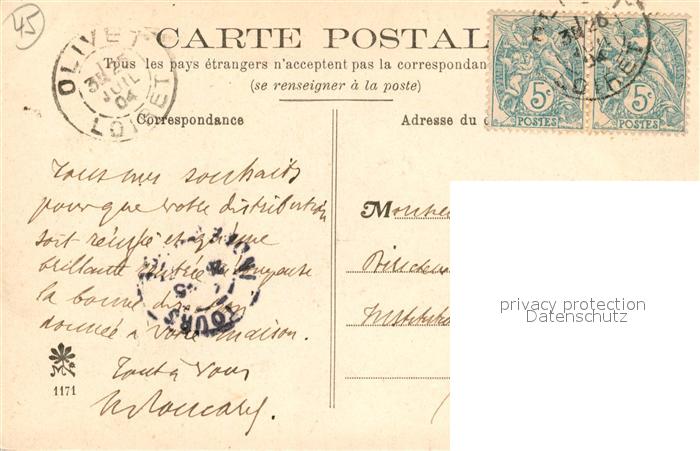 45
CARTE POSTALE
Tous les pays étrangers n'acceptent pas la correspondan
(se renseigner à la poste)
Correspondance
Adresse du d
OLIVET
3E 26
JUIL
04
LOIRET
5c
POSTES
5c
POSTES
Tous mes souhaits
pour que votre distribution
soit réussie et qu'une
brillante rentrée récompense
la bonne direction
donnée à votre maison.
Tout à vous
Monsieu
Directeu
Institutio
TOURS
1171
privacy protection
Datenschutz